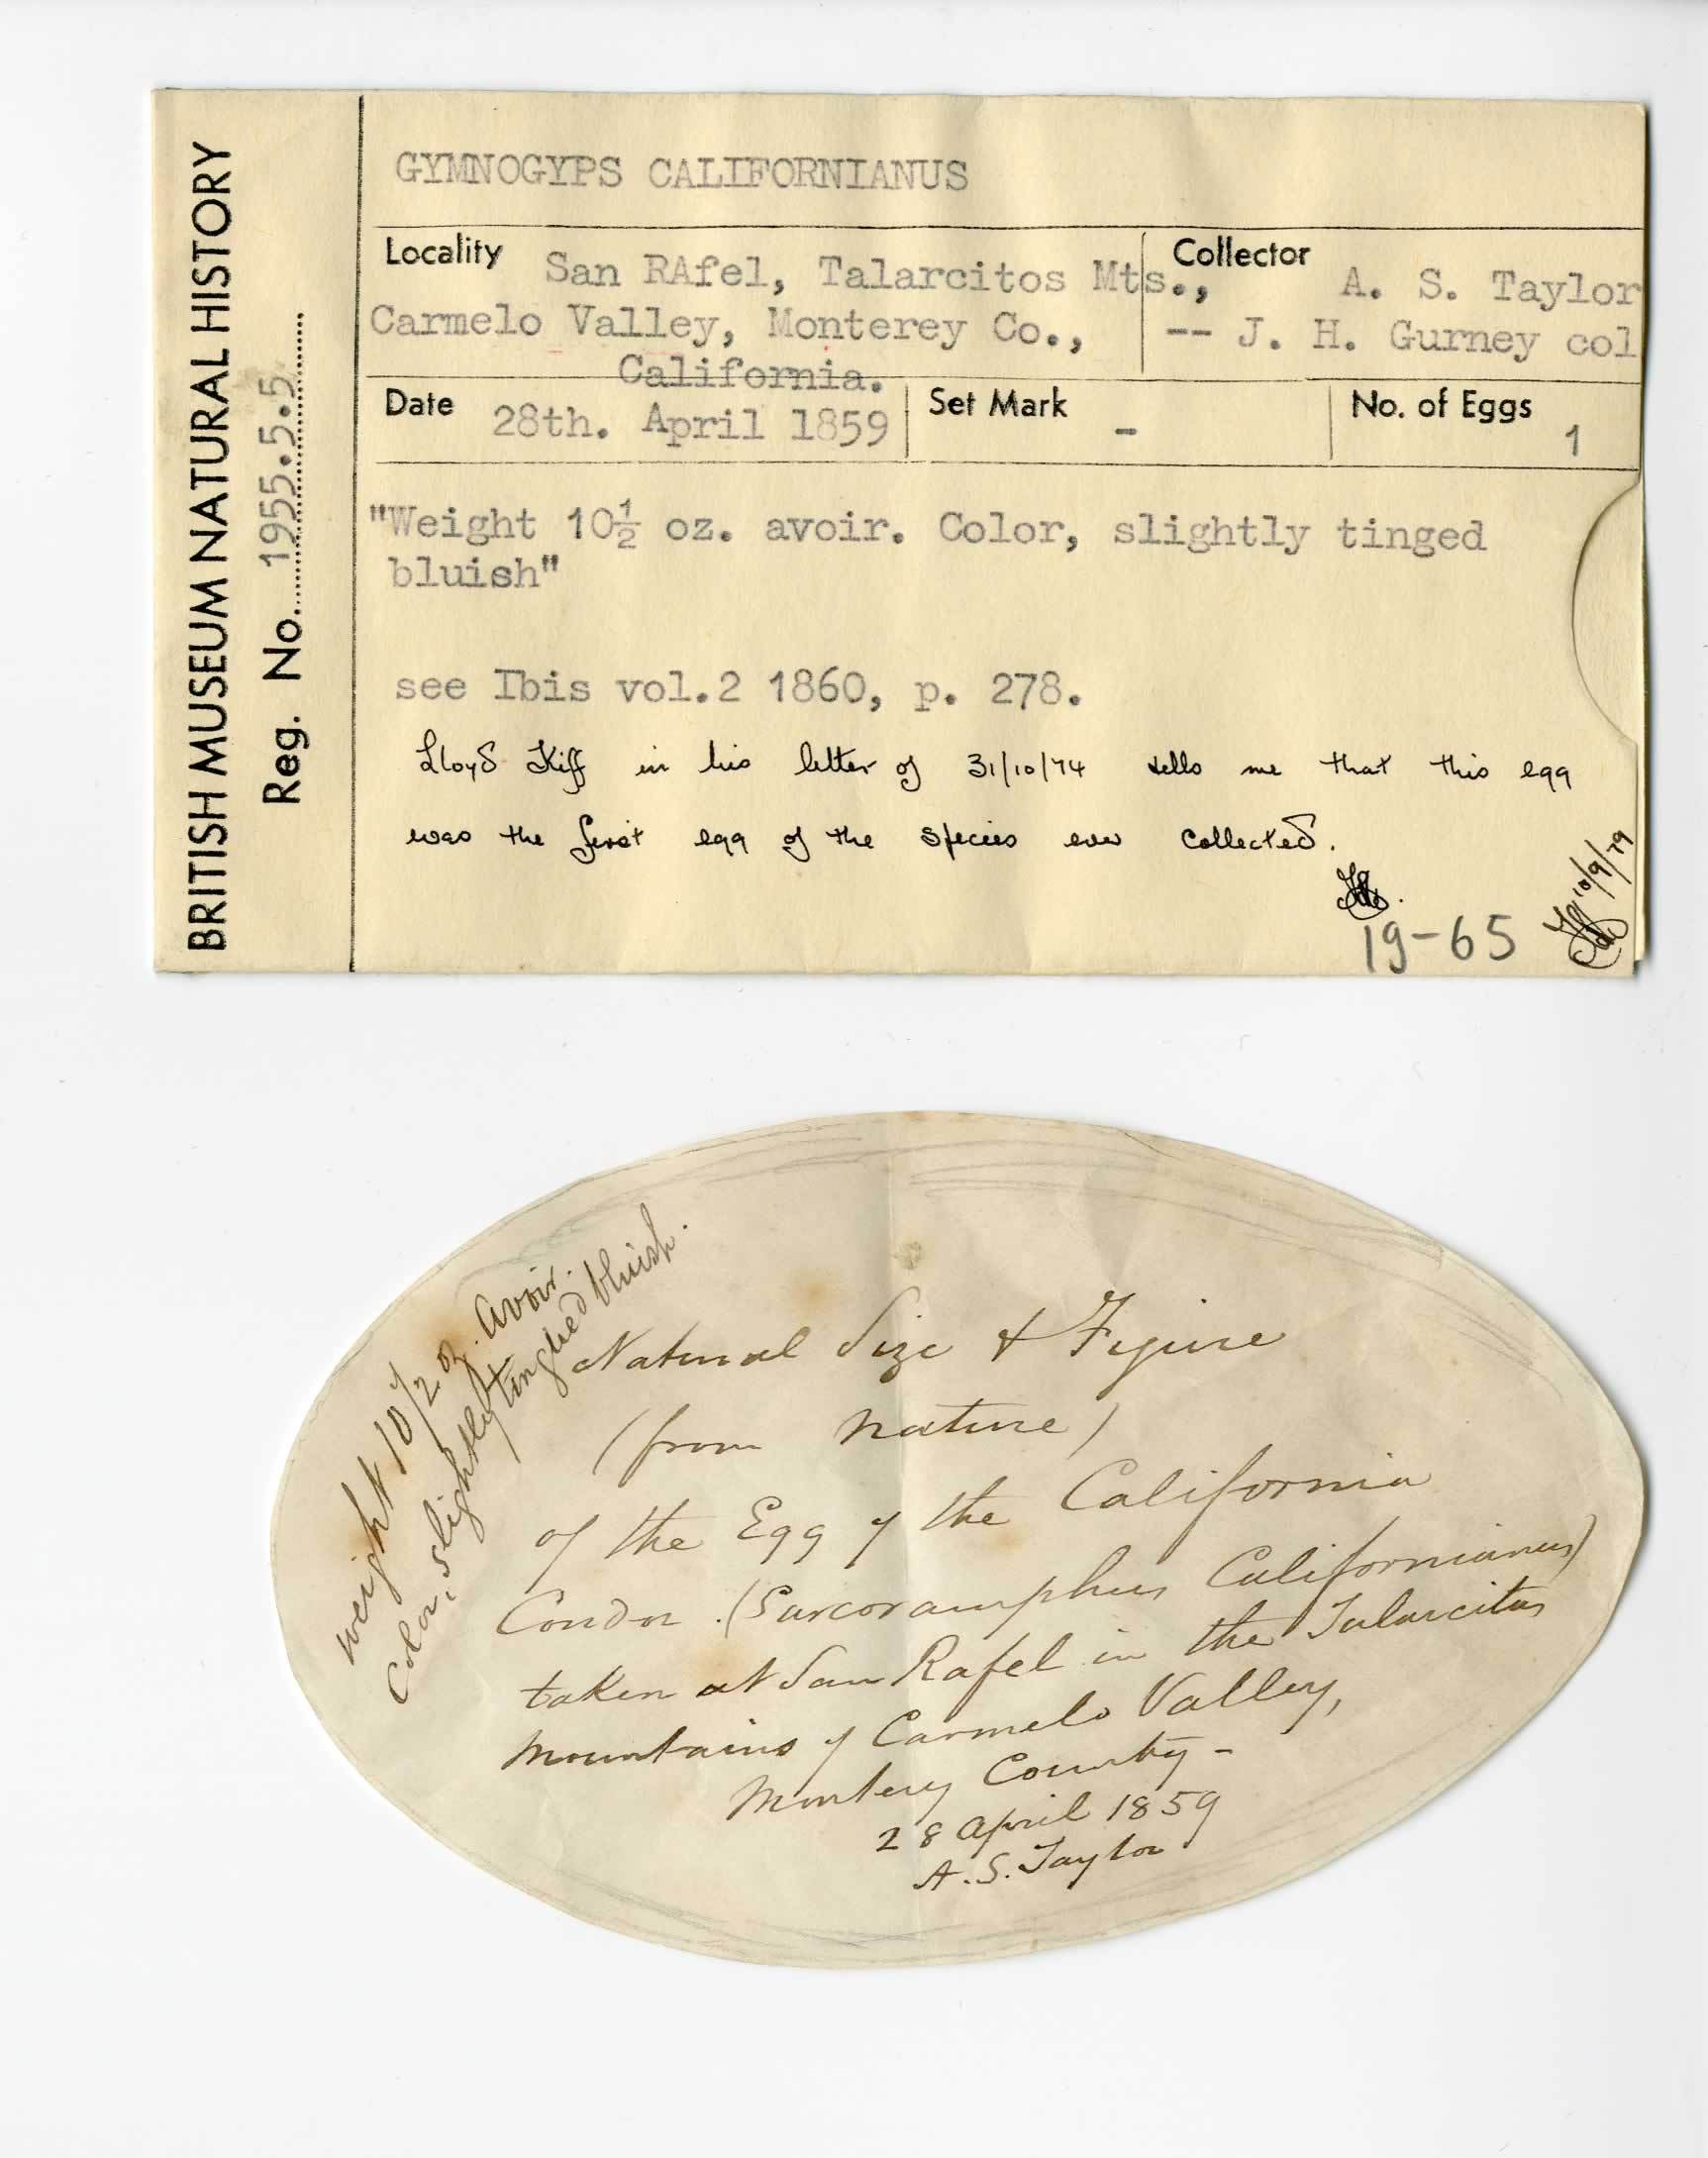 BRITISH MUSEUM NATURAL HISTORY
Reg. No. 1955.5.5
GYMNOGYPS CALIFORNIANUS
Locality San RAfel, Talarcitos Mts.,
Carmelo Valley, Monterey Co.,
California.
Collector A. S. Taylor
-- J. H. Gurney col
Date 28th. April 1859
Set Mark -
No. of Eggs 1
"Weight 10½ oz. avoir. Color, slightly tinged
bluish"
see Ibis vol.2 1860, p. 278.
Lloyd Kiff in his letter of 31/10/74 tells me that this egg
was the first egg of the species ever collected.
19-65
10/9/79
weight 10 1/2 oz. avoir.
Color, slightly tinghed bluish.
Natural Size & Figure
(from nature)
of the Egg of the California
Condor. (Sarcoramphus Californianus)
taken at San Rafel in the Talarcitos
Mountains of Carmelo Valley,
Monterey County -
28 April 1859
A. S. Taylor